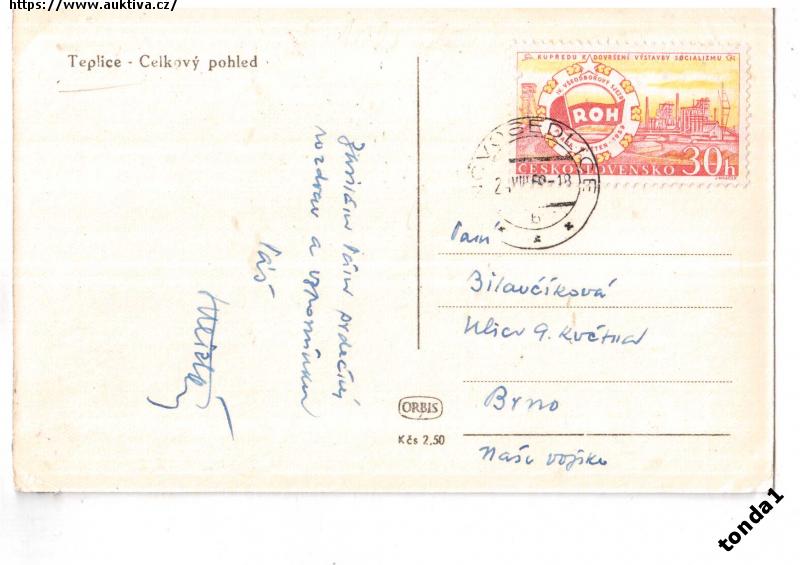 https://www.auktiva.cz/
Teplice - Celkový pohled
KUPŘEDU K DOVRŠENÍ VÝSTAVBY SOCIALIZMU
IV. VŠEODBOROVÝ SJEZD
ROH
KVĚTEN 1959
ČESKOSLOVENSKO 30h
NOVOSEDLICE
VIII 59-18
b
Zasílám Vám srdečný
pozdrav a vzpomínku
Váš
Paní
Bilavčíková
Ulice 9. května
Brno
Naše vojsko
ORBIS
Kčs 2,50
tonda1